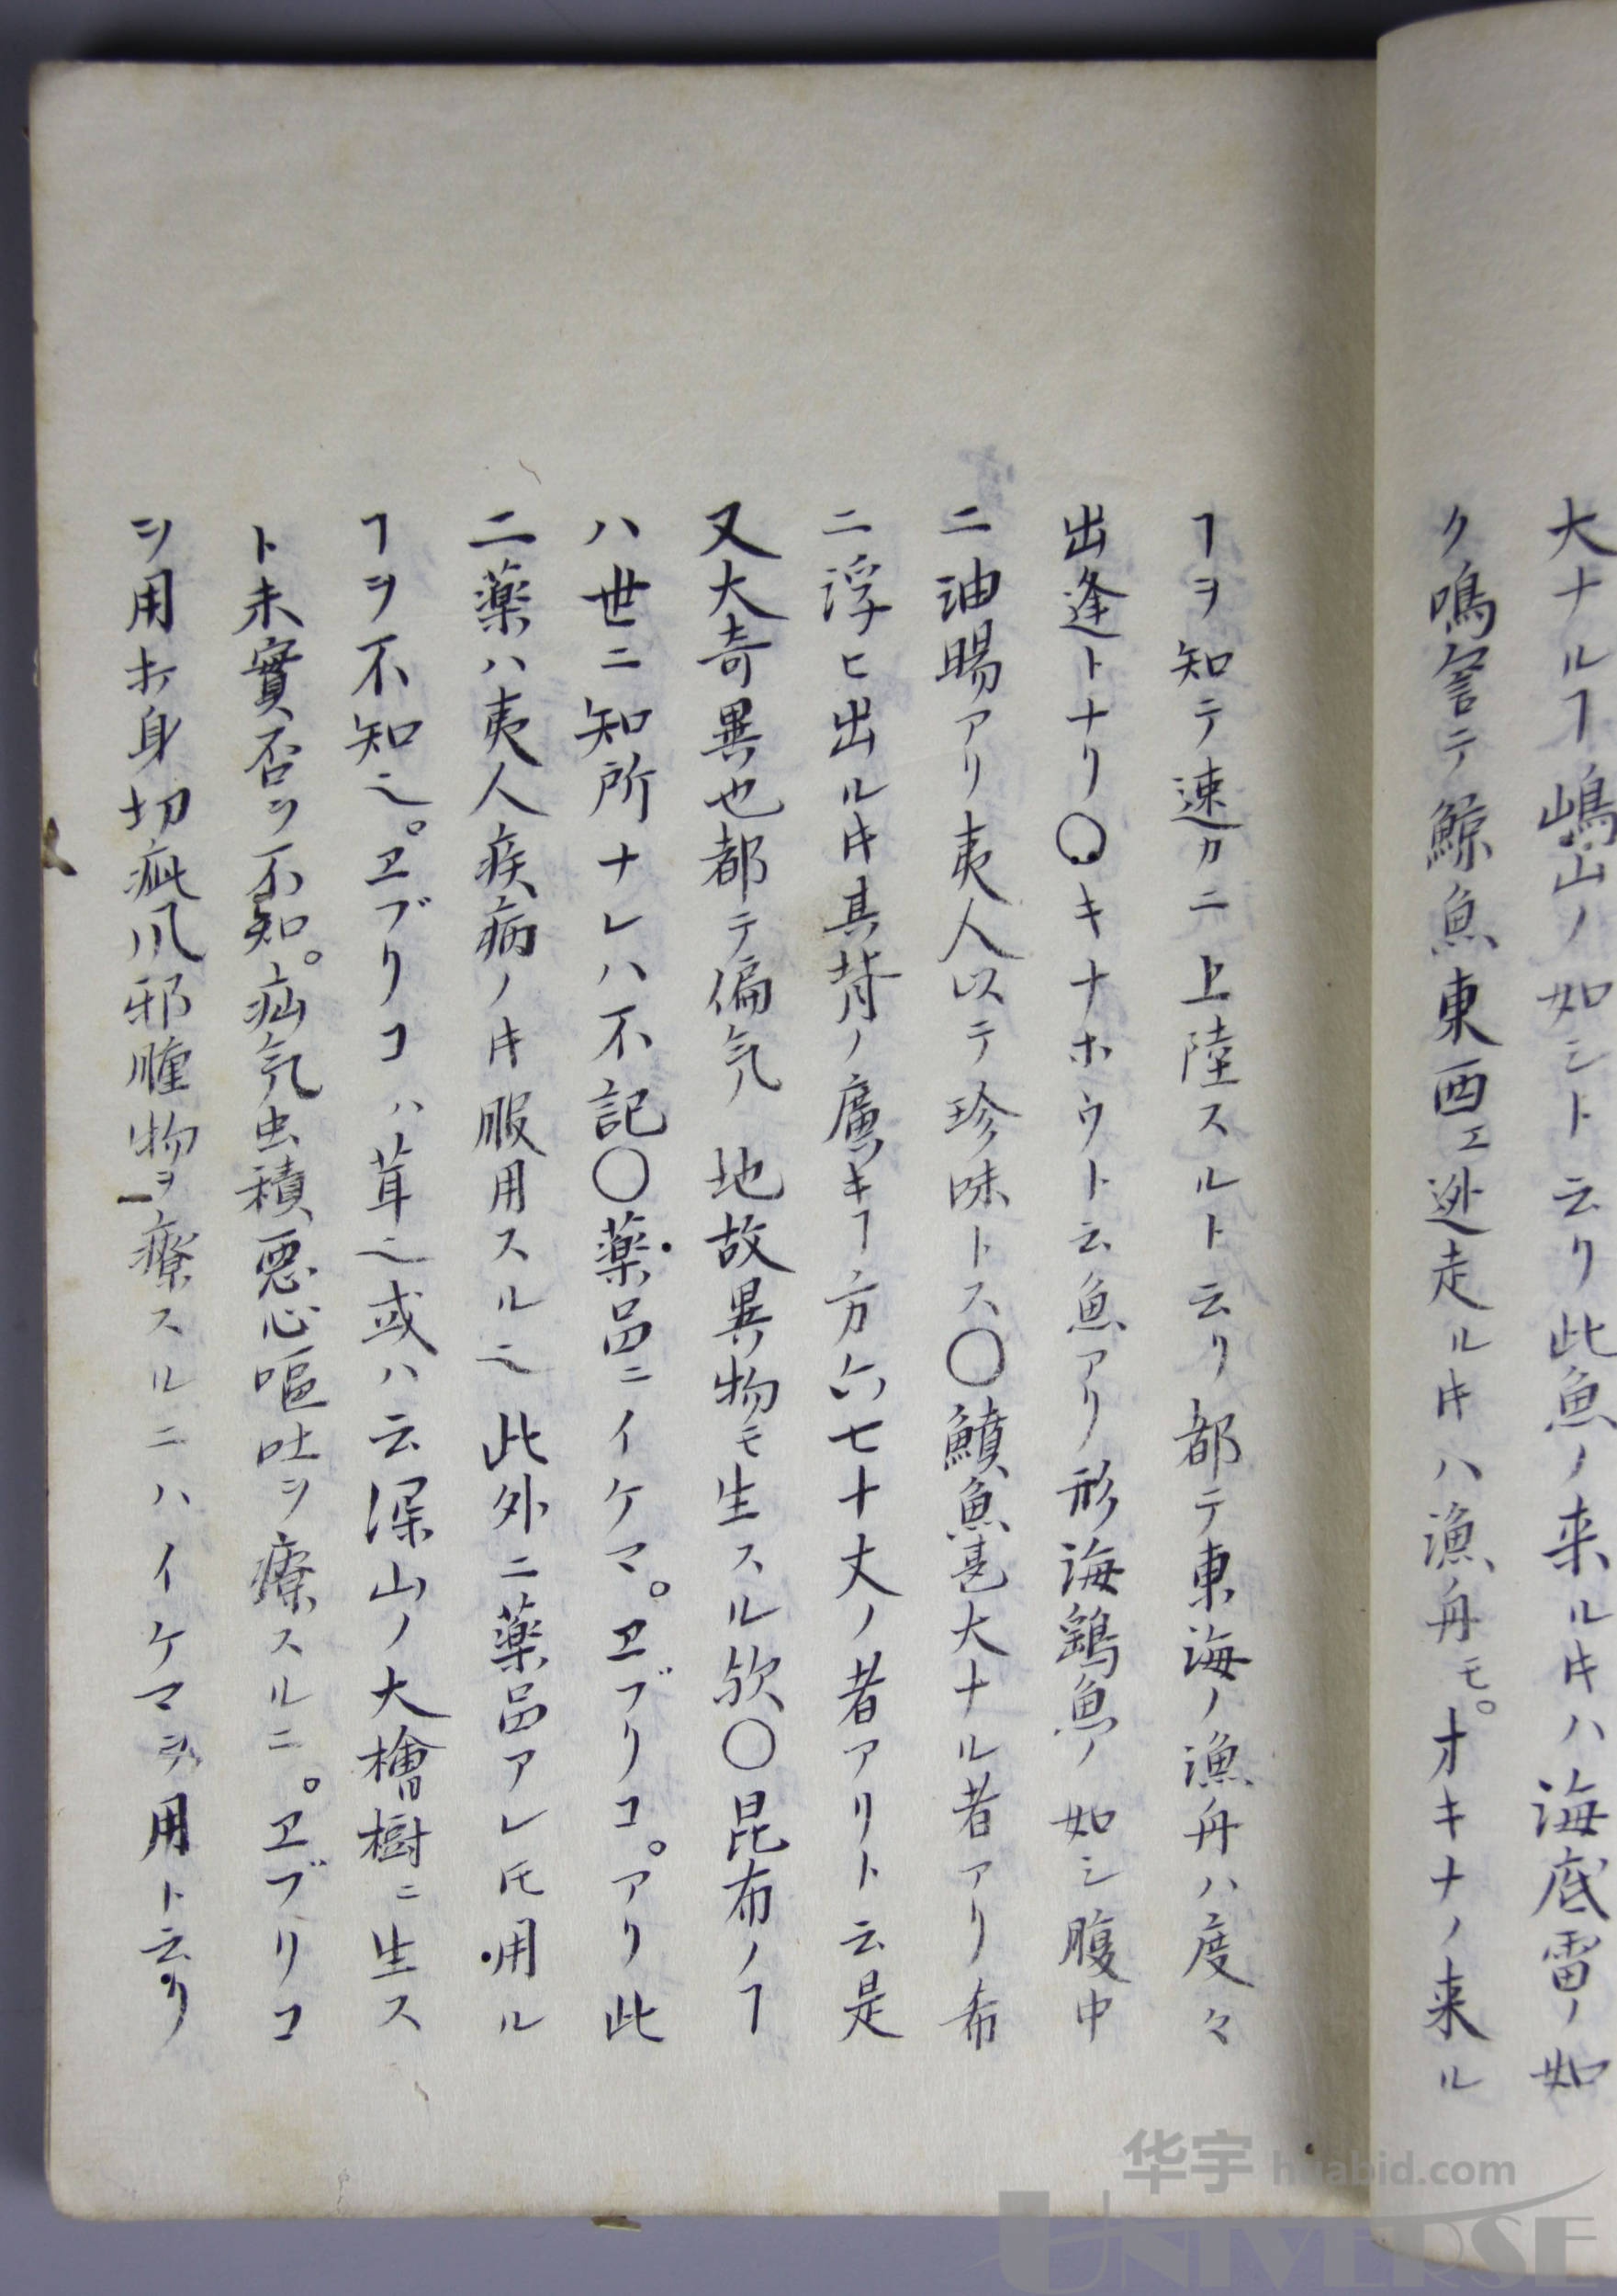 大ナルヿ嶋山ノ如シト云リ此魚ノ来ルキハ海底雷ノ如
ク鳴響テ鯨魚東西エ逃走ルキハ漁舟モ。オキナノ来ル
ヿヲ知テ速カニ上陸スルト云リ都テ東海ノ漁舟ハ度々
出逢トナリ〇キナホウト云魚アリ形海鷂魚ノ如シ腹中
ニ油腸アリ夷人以テ珍味トス〇鱝魚甚大ナル者アリ希
ニ浮ヒ出ルキ其背ノ廣キヿ方六七十丈ノ者アリト云是
又大奇異也都テ偏気地故異物モ生スル欤〇昆布ノヿ
ハ世ニ知所ナレハ不記〇薬品ニイケマ。ヱブリコ。アリ此
二薬ハ夷人疾病ノキ服用スル也此外ニ薬品アレ𪜈用ル
ヿヲ不知也。ヱブリコハ茸也或ハ云深山ノ大檜樹ニ生ス
ト未實否ヲ不知。疝気虫積悪心嘔吐ヲ療スルニ。ヱブリコ
ヲ用オ身切疵爪邪腫物ヲ療スルニハイケマヲ用ト云リ
华宇 huabid.com
UNIVERSE